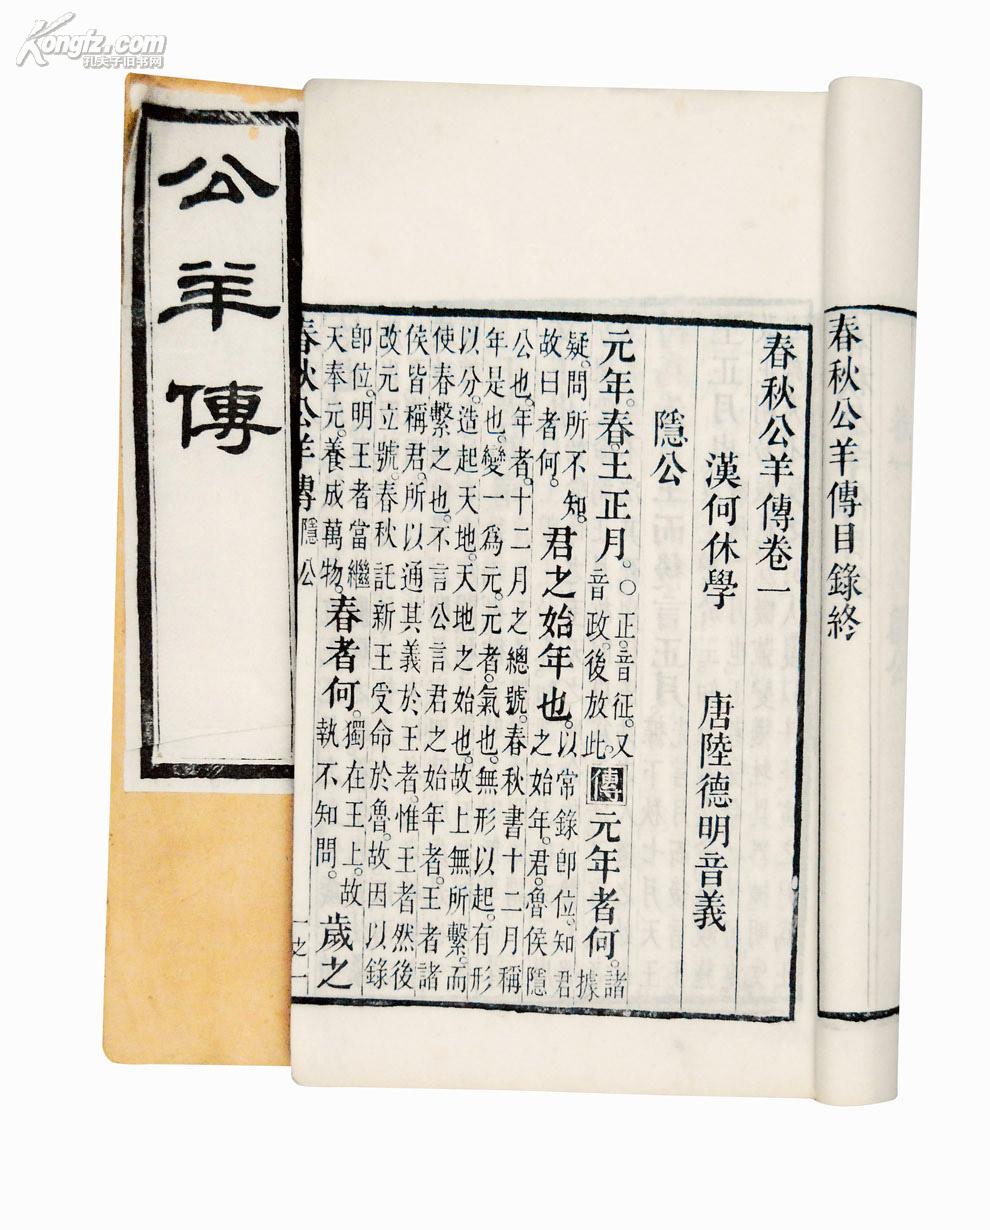 Kongfz.com
孔夫子旧书网
公羊傳
春秋公羊傳目錄終
春秋公羊傳卷一
漢何休學 唐陸德明音義
隱公
元年。春。王正月。○正。音征。又音政。後放此。傳元年者何。諸據
疑。問所不知。故曰者何。君之始年也。以常錄即位。知君之始年。君。魯侯隱
公也。年者。十二月之總號。春秋書十二月稱
年是也。變一爲元。元者。氣也。無形以起。有形
以分。造起天地。天地之始也。故上無所繫。而
使春繫之也。不言公言君之始年者。王者諸
侯皆稱君。所以通其義於王者。惟王者然後
改元立號。春秋託新王受命於魯。故因以錄
即位。明王者當繼天奉元。養成萬物。春者何。獨在王上。故執不知問。歲之
春秋公羊傳 隱公 一之一